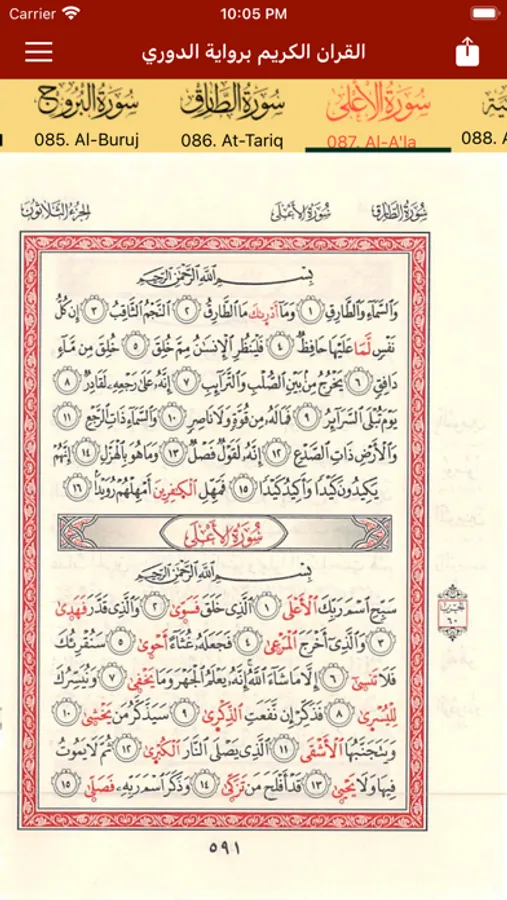 Carrier 10:05 PM
القران الكريم برواية الدوري
سورة البروج سورة الطارق سورة الأعلى
085. Al-Buruj 086. At-Tariq 087. Al-A'la 088. A
سورة الطارق سورة الأعلى الجزء الثلاثون
بسم الله الرحمن الرحيم
وَالسَّمَاءِ وَالطَّارِقِ ١ وَمَا أَدْرِيٰكَ مَا الطَّارِقُ ٢ النَّجْمُ الثَّاقِبُ ٣ إِن كُلُّ
نَفْسٍ لَّمَا عَلَيْهَا حَافِظٌ ٤ فَلْيَنظُرِ الْإِنسَٰنُ مِمَّ خُلِقَ ٥ خُلِقَ مِن مَّاءٍ
دَافِقٍ ٦ يَخْرُجُ مِنْ بَيْنِ الصُّلْبِ وَالتَّرَائِبِ ٧ إِنَّهُ عَلَىٰ رَجْعِهِ لَقَادِرٌ ٨
يَوْمَ تُبْلَى السَّرَائِرُ ٩ فَمَا لَهُ مِن قُوَّةٍ وَلَا نَاصِرٍ ١٠ وَالسَّمَاءِ ذَاتِ الرَّجْعِ ١١
وَالْأَرْضِ ذَاتِ الصَّدْعِ ١٢ إِنَّهُ لَقَوْلٌ فَصْلٌ ١٣ وَمَا هُوَ بِالْهَزْلِ ١٤ إِنَّهُمْ
يَكِيدُونَ كَيْدًا وَأَكِيدُ كَيْدًا ١٥ فَمَهِّلِ الْكٰفِرِينَ أَمْهِلْهُمْ رُوَيْدًا ١٦
سورة الأعلى
بسم الله الرحمن الرحيم
سَبِّحِ اسْمَ رَبِّكَ الْأَعْلَى ١ الَّذِي خَلَقَ فَسَوّٰى ٢ وَالَّذِي قَدَّرَ فَهَدٰى
٣ وَالَّذِي أَخْرَجَ الْمَرْعٰى ٤ فَجَعَلَهُ غُثَاءً أَحْوٰى ٥ سَنُقْرِئُكَ
فَلَا تَنسٰى ٦ إِلَّا مَا شَاءَ اللَّهُ إِنَّهُ يَعْلَمُ الْجَهْرَ وَمَا يَخْفٰى ٧ وَنُيَسِّرُكَ
لِلْيُسْرٰى ٨ فَذَكِّرْ إِن نَّفَعَتِ الذِّكْرٰى ٩ سَيَذَّكَّرُ مَن يَخْشٰى ١٠
وَيَتَجَنَّبُهَا الْأَشْقَى ١١ الَّذِي يَصْلَى النَّارَ الْكُبْرٰى ١٢ ثُمَّ لَا يَمُوتُ
فِيهَا وَلَا يَحْيٰى ١٣ قَدْ أَفْلَحَ مَن تَزَكّٰى ١٤ وَذَكَرَ اسْمَ رَبِّهِ فَصَلّٰى ١٥
٦٠
٥٩١